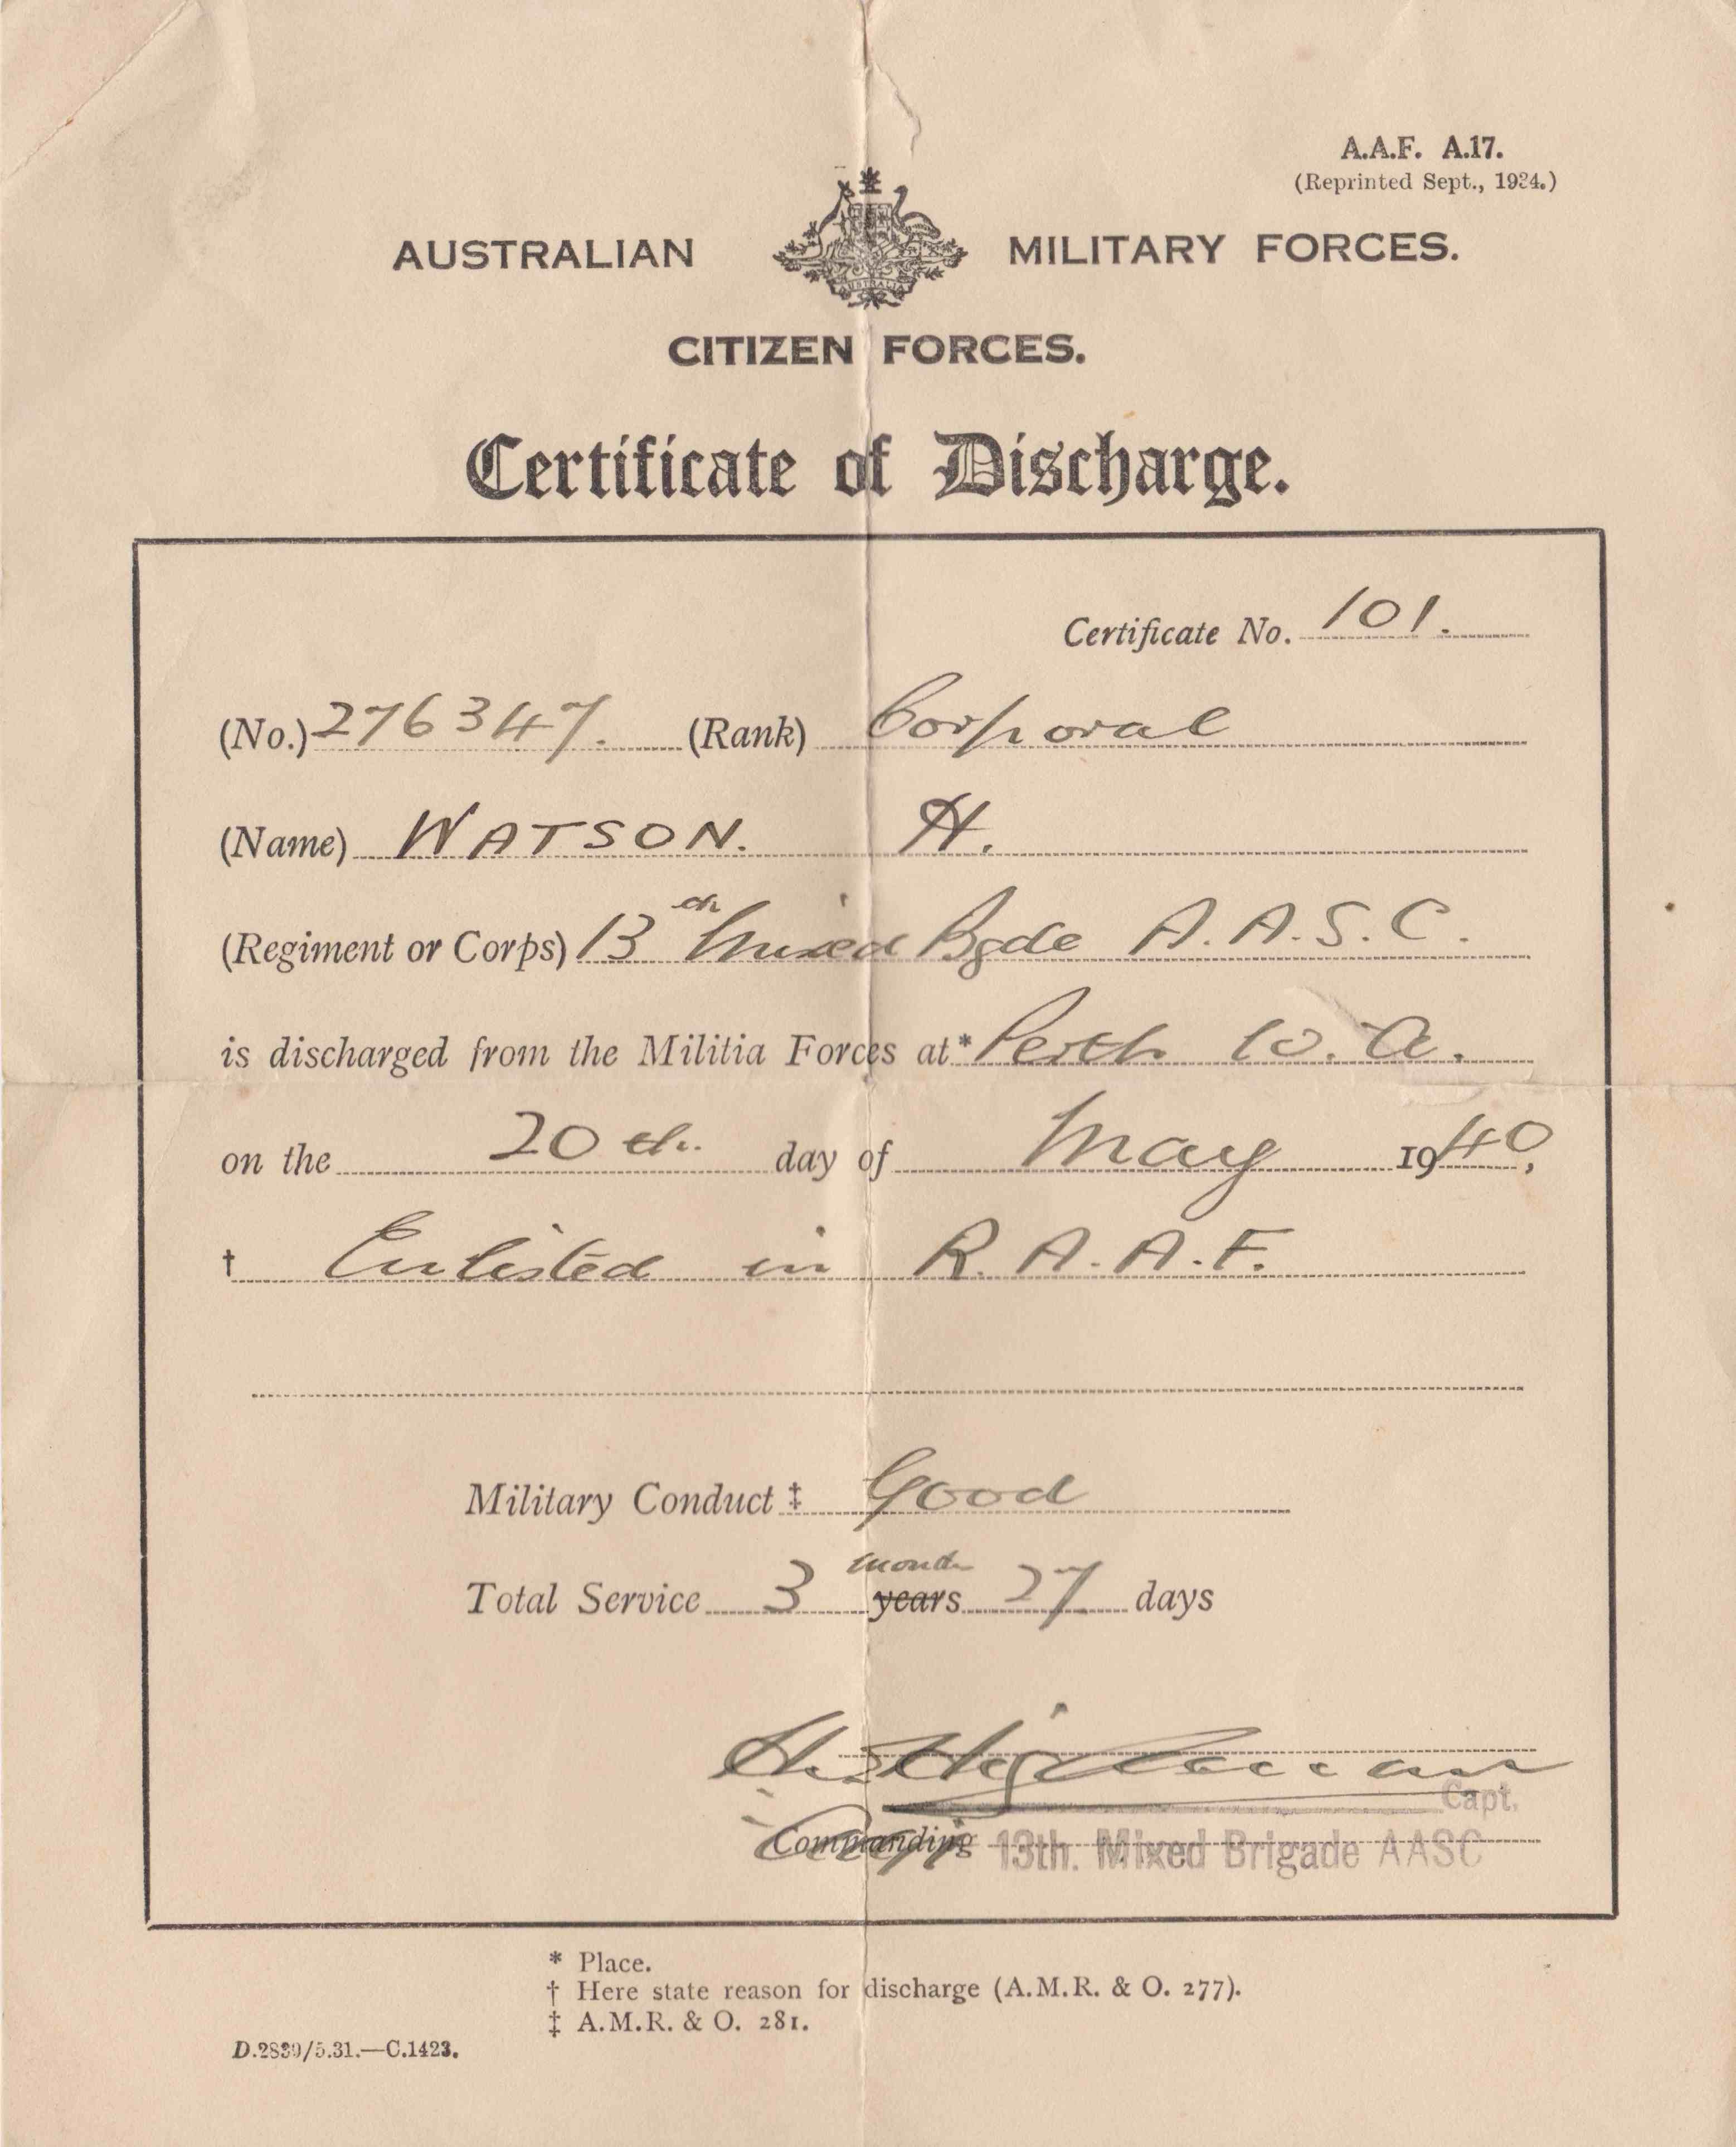 A.A.F. A.17.
(Reprinted Sept., 1924.)
AUSTRALIAN MILITARY FORCES.
AUSTRALIA
CITIZEN FORCES.
Certificate of Discharge.
Certificate No. 101.
(No.) 276347. (Rank) Corporal
(Name) WATSON. H.
(Regiment or Corps) 13th Mixed Bgde A.A.S.C.
is discharged from the Militia Forces at* Perth W.A.
on the 20th. day of May 1940,
† Enlisted in R.A.A.F.
Military Conduct ‡ Good
month
Total Service 3 years 27 days
Capt.
Commanding 13th. Mixed Brigade AASC
* Place.
† Here state reason for discharge (A.M.R. & O. 277).
‡ A.M.R. & O. 281.
D.2839/5.31.—C.1423.